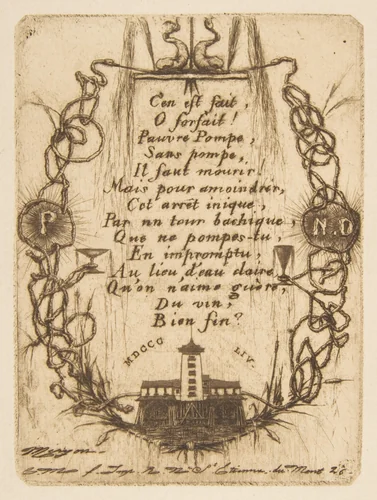 C'en est fait,
O forfait!
Pauvre Pompe,
Sans pompe,
Il faut mourir!
Mais pour amoindrir,
Cet arrêt inique,
Par un tour bachique,
P
N.D
Que ne pompes-tu,
En impromptu,
Au lieu d'eau claire,
Qu'on n'aime guère,
Du vin,
Bien fin?
MDCCC LIV.
Meryon
C M f. Imp. R. N. St Etienne-du-Mont 26.